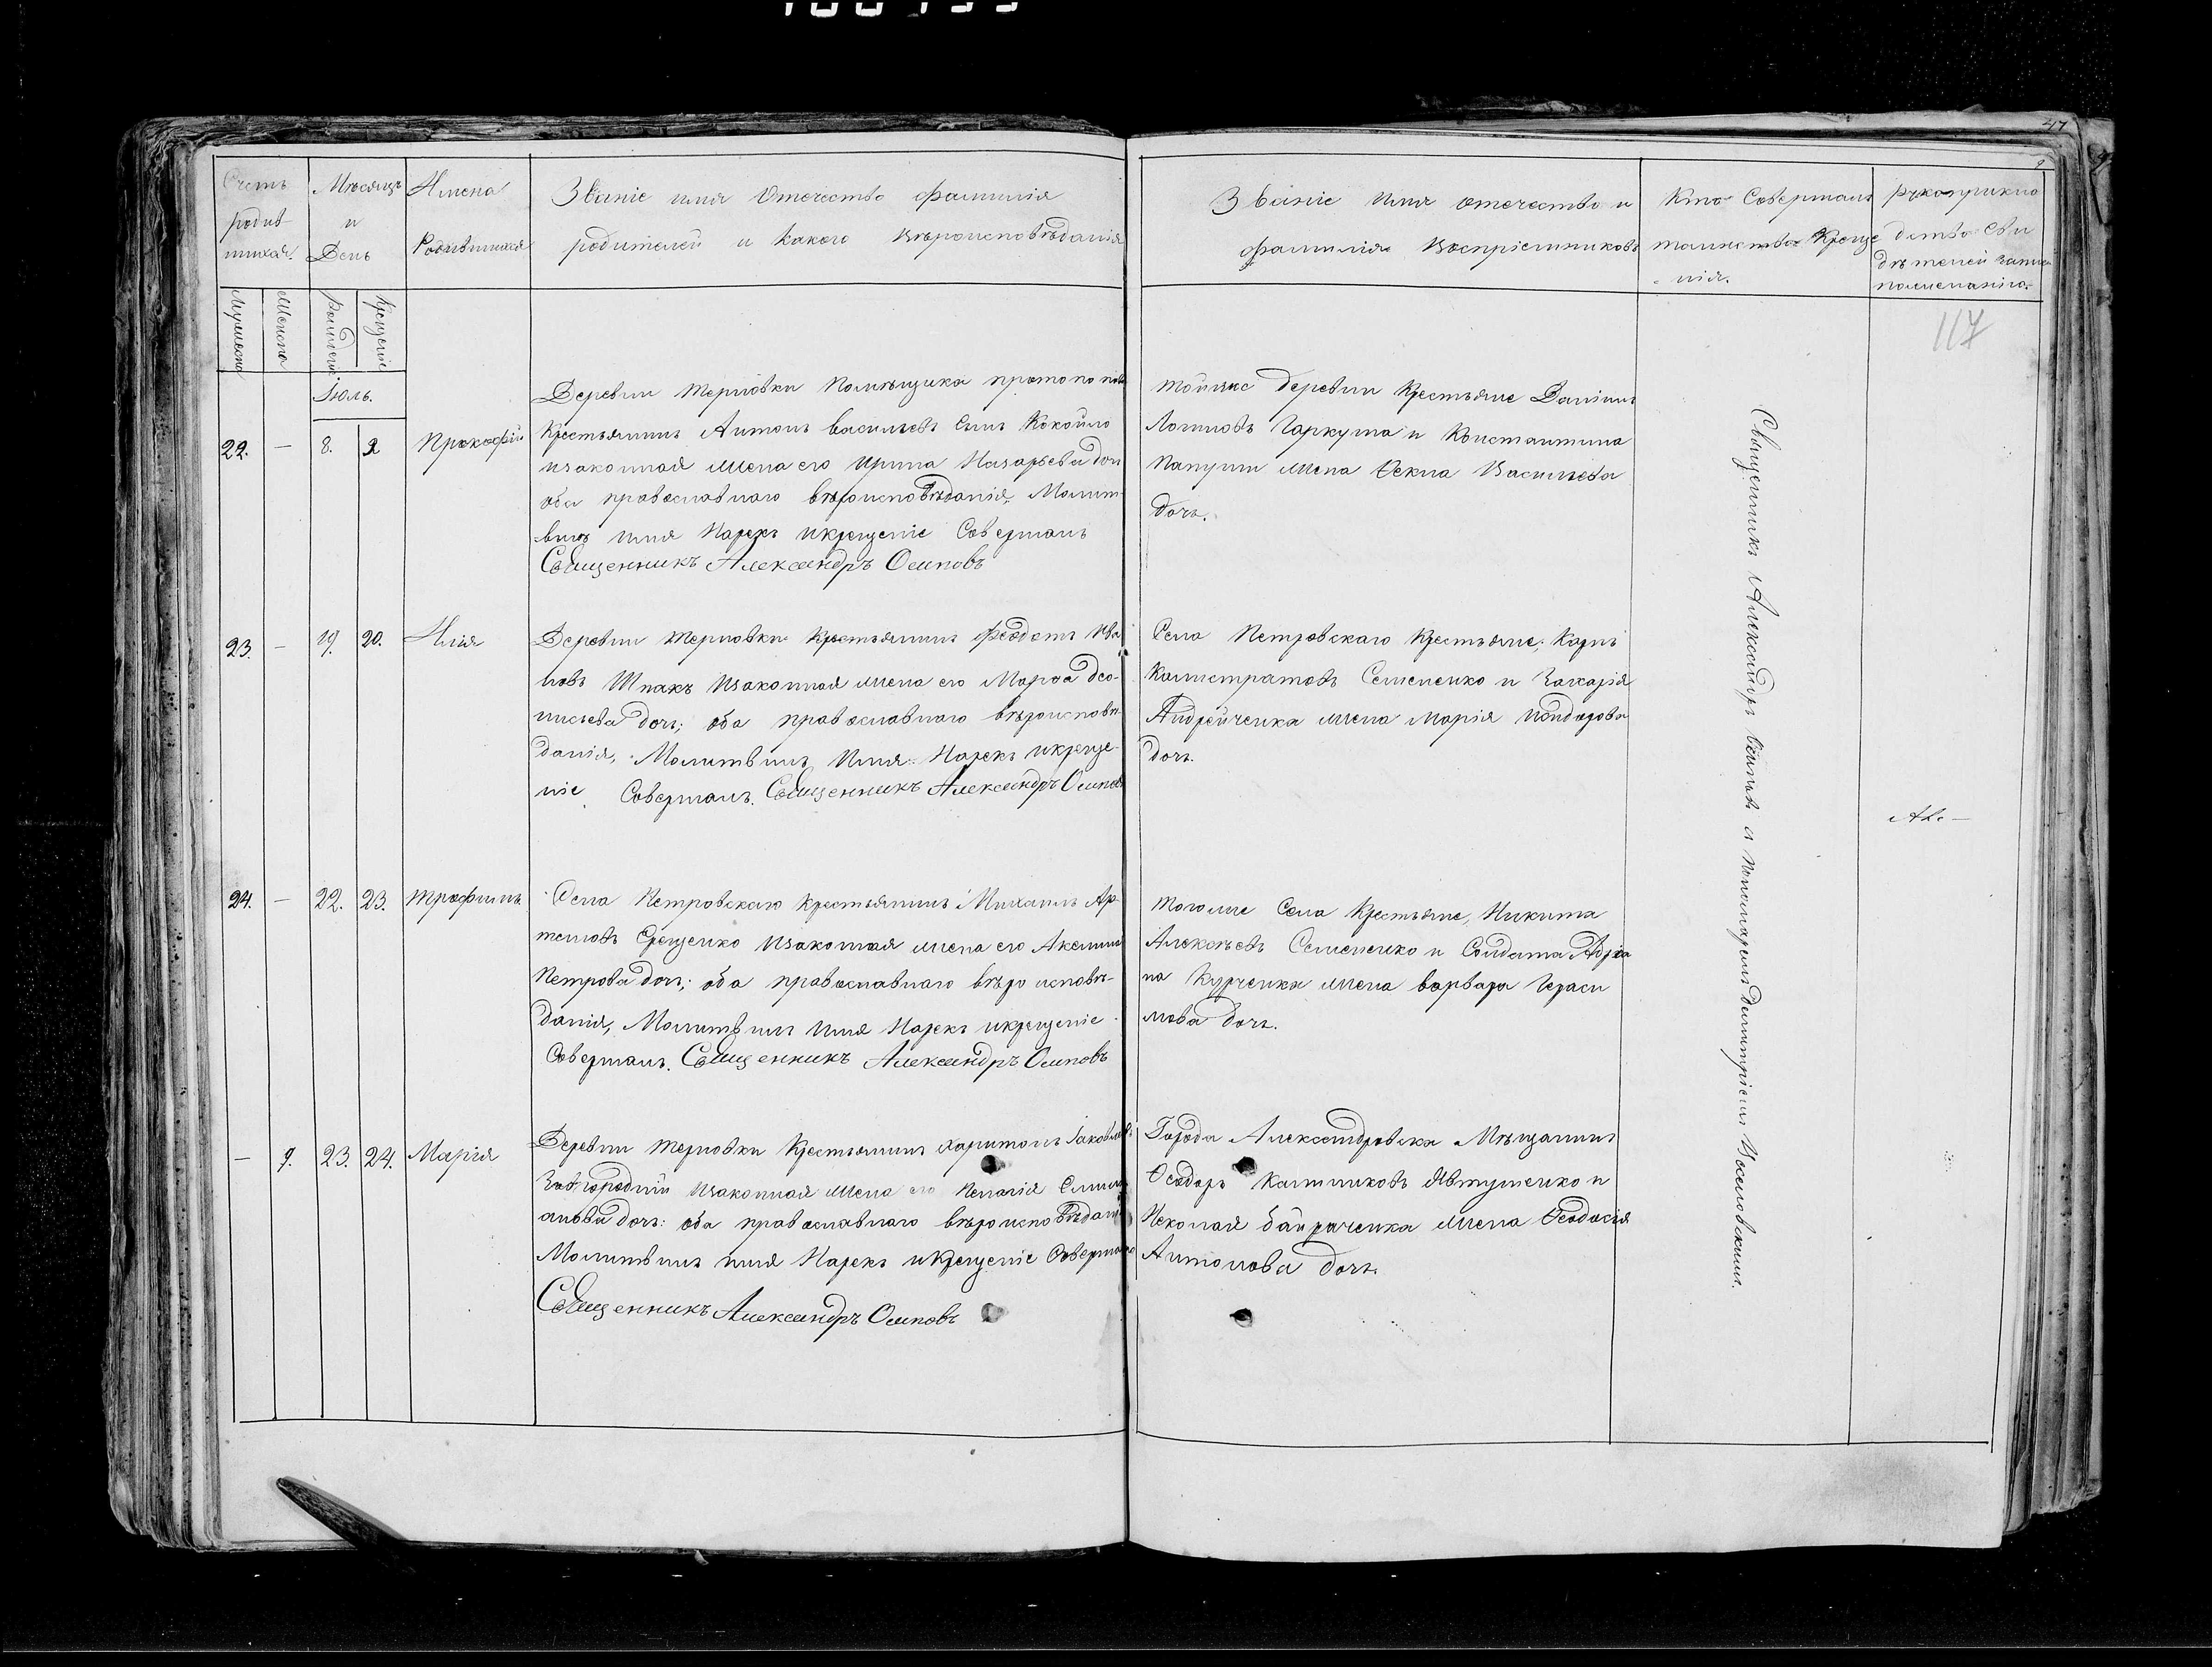 47
Счетъ родив-шихся.
Мѣсяцъ и День
Имена Родившихся
Званіе имя Отечество фамилія
родителей и какого Вѣроисповѣданія
Званіе имя отечество и
фамилія Воспріемниковъ
Кто Совершалъ
таинство Креще
нія.
рукоприкла
дство Сви
дѣтелей запис
Мужеска
Женска
рожденія
крещеніе
117
Іюль.
22. — 8. 9 Прокофій
Деревни Терновки Помѣщика
Крестьянинъ Антонъ васильевъ сынъ Кокойло
изаконная жена его Ирина Назарьева доч
оба православнаго вѣроисповѣданія, Молит-
вилъ имя Нарекъ икрещеніе Совершалъ
Священникъ Александръ Осиповъ
тойже деревни Крестьяне Даніилъ
Логиновъ Гаркуша и Константина
Папуши жена Ѳекла Васильева
дочь.
23. — 19. 20. Илія
Деревни Терновки Крестьянинъ Феодотъ Ива
новъ Шпакъ изаконная жена его Марфа Део-
нисьева дочь; оба православнаго вѣроисповѣ-
данія, Молитвилъ Имя Нарекъ икреще-
ніе Совершалъ. Священникъ Александръ Осиповъ
Села Петровскаго Крестьяне; Карпъ
Калистратовъ Семененко и Захарія
Андрейченка жена Марія
дочь.
24. — 22. 23. Трофимъ
Села Петровскаго крестьянинъ Михаилъ Ар-
темовъ Срещенко изаконная жена его Акелина
Петрова дочь; оба православнаго вѣро исповѣ-
данія, Молитвилъ имя Нарекъ икрещеніе
Совершалъ. Священникъ Александръ Осиповъ
тогоже Села Крестьяне, Никита
Алексѣевъ Семененко и Солдата Адріа
на Курченка жена варвара Гераси
мова дочь.
— 9. 23. 24. Марія
Деревни Терновки Крестьянинъ харитонъ Іаковлевъ
Загородній изаконная жена его Пелагія Емили
анова дочь: оба православнаго вѣроисповѣдані
Молитвилъ имя Нарекъ икрещеніе Совершалъ
Священникъ Александръ Осиповъ
Города Александровска Мѣщанинъ
Ѳеодоръ Калиниковъ Явтушенко и
Николая байраченка жена Ѳеодосія
Антонова дочь.
Священникъ Александръ Осиповъ съ пономаремъ Димитріемъ